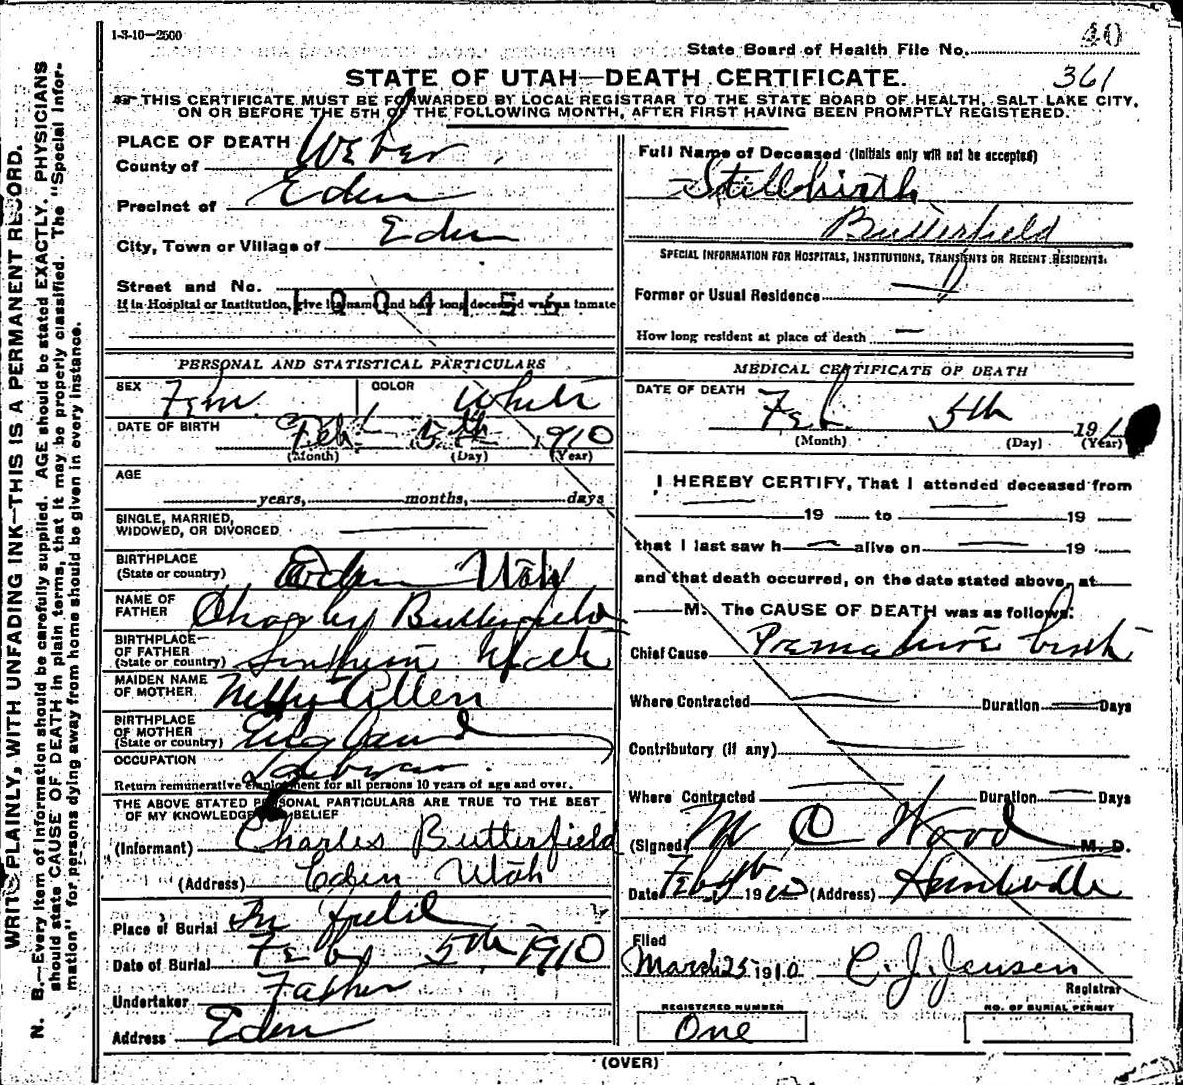 1-3-10—2500
40
State Board of Health File No.
361
STATE OF UTAH—DEATH CERTIFICATE.
THIS CERTIFICATE MUST BE FORWARDED BY LOCAL REGISTRAR TO THE STATE BOARD OF HEALTH, SALT LAKE CITY,
ON OR BEFORE THE 5TH OF THE FOLLOWING MONTH, AFTER FIRST HAVING BEEN PROMPTLY REGISTERED.
WRITE PLAINLY, WITH UNFADING INK—THIS IS A PERMANENT RECORD.
N. B.—Every item of information should be carefully supplied. AGE should be stated EXACTLY. PHYSICIANS
should state CAUSE OF DEATH in plain terms, that it may be properly classified. The "Special Infor-
mation" for persons dying away from home should be given in every instance.
PLACE OF DEATH
County of Weber
Precinct of Eden
City, Town or Village of Eden
Street and No.
If in Hospital or Institution, give its name and how long deceased was an inmate
1004156
PERSONAL AND STATISTICAL PARTICULARS
SEX Fem. COLOR White
DATE OF BIRTH Feb. 5th 1910
(Month) (Day) (Year)
AGE
years, months, days
SINGLE, MARRIED,
WIDOWED, OR DIVORCED
BIRTHPLACE
(State or country) Eden Utah
NAME OF
FATHER Charles Butterfield
BIRTHPLACE
OF FATHER
(State or country) Utah
MAIDEN NAME
OF MOTHER Nelly Allen
BIRTHPLACE
OF MOTHER
(State or country) England
OCCUPATION
Return remunerative employment for all persons 10 years of age and over.
THE ABOVE STATED PERSONAL PARTICULARS ARE TRUE TO THE BEST
OF MY KNOWLEDGE BELIEF
(Informant) Charles Butterfield
(Address) Eden Utah
Place of Burial In field
Date of Burial Feby 5th 1910
Undertaker Father
Address Eden
Full Name of Deceased (Initials only will not be accepted)
Stillbirth
Butterfield
SPECIAL INFORMATION FOR HOSPITALS, INSTITUTIONS, TRANSIENTS OR RECENT RESIDENTS.
Former or Usual Residence
How long resident at place of death
MEDICAL CERTIFICATE OF DEATH
DATE OF DEATH
Feb. 5th 191
(Month) (Day) (Year)
I HEREBY CERTIFY, That I attended deceased from
19 to 19
that I last saw h alive on 19
and that death occurred, on the date stated above, at
M. The CAUSE OF DEATH was as follows:
Chief Cause Premature birth
Where Contracted Duration Days
Contributory (if any)
Where Contracted Duration Days
(Signed) M C Wood M. D.
Date Feby 1910 (Address) Huntsville
Filed
March 25 1910 C. J. Jensen
Registrar
REGISTERED NUMBER
One
NO. OF BURIAL PERMIT
(OVER)